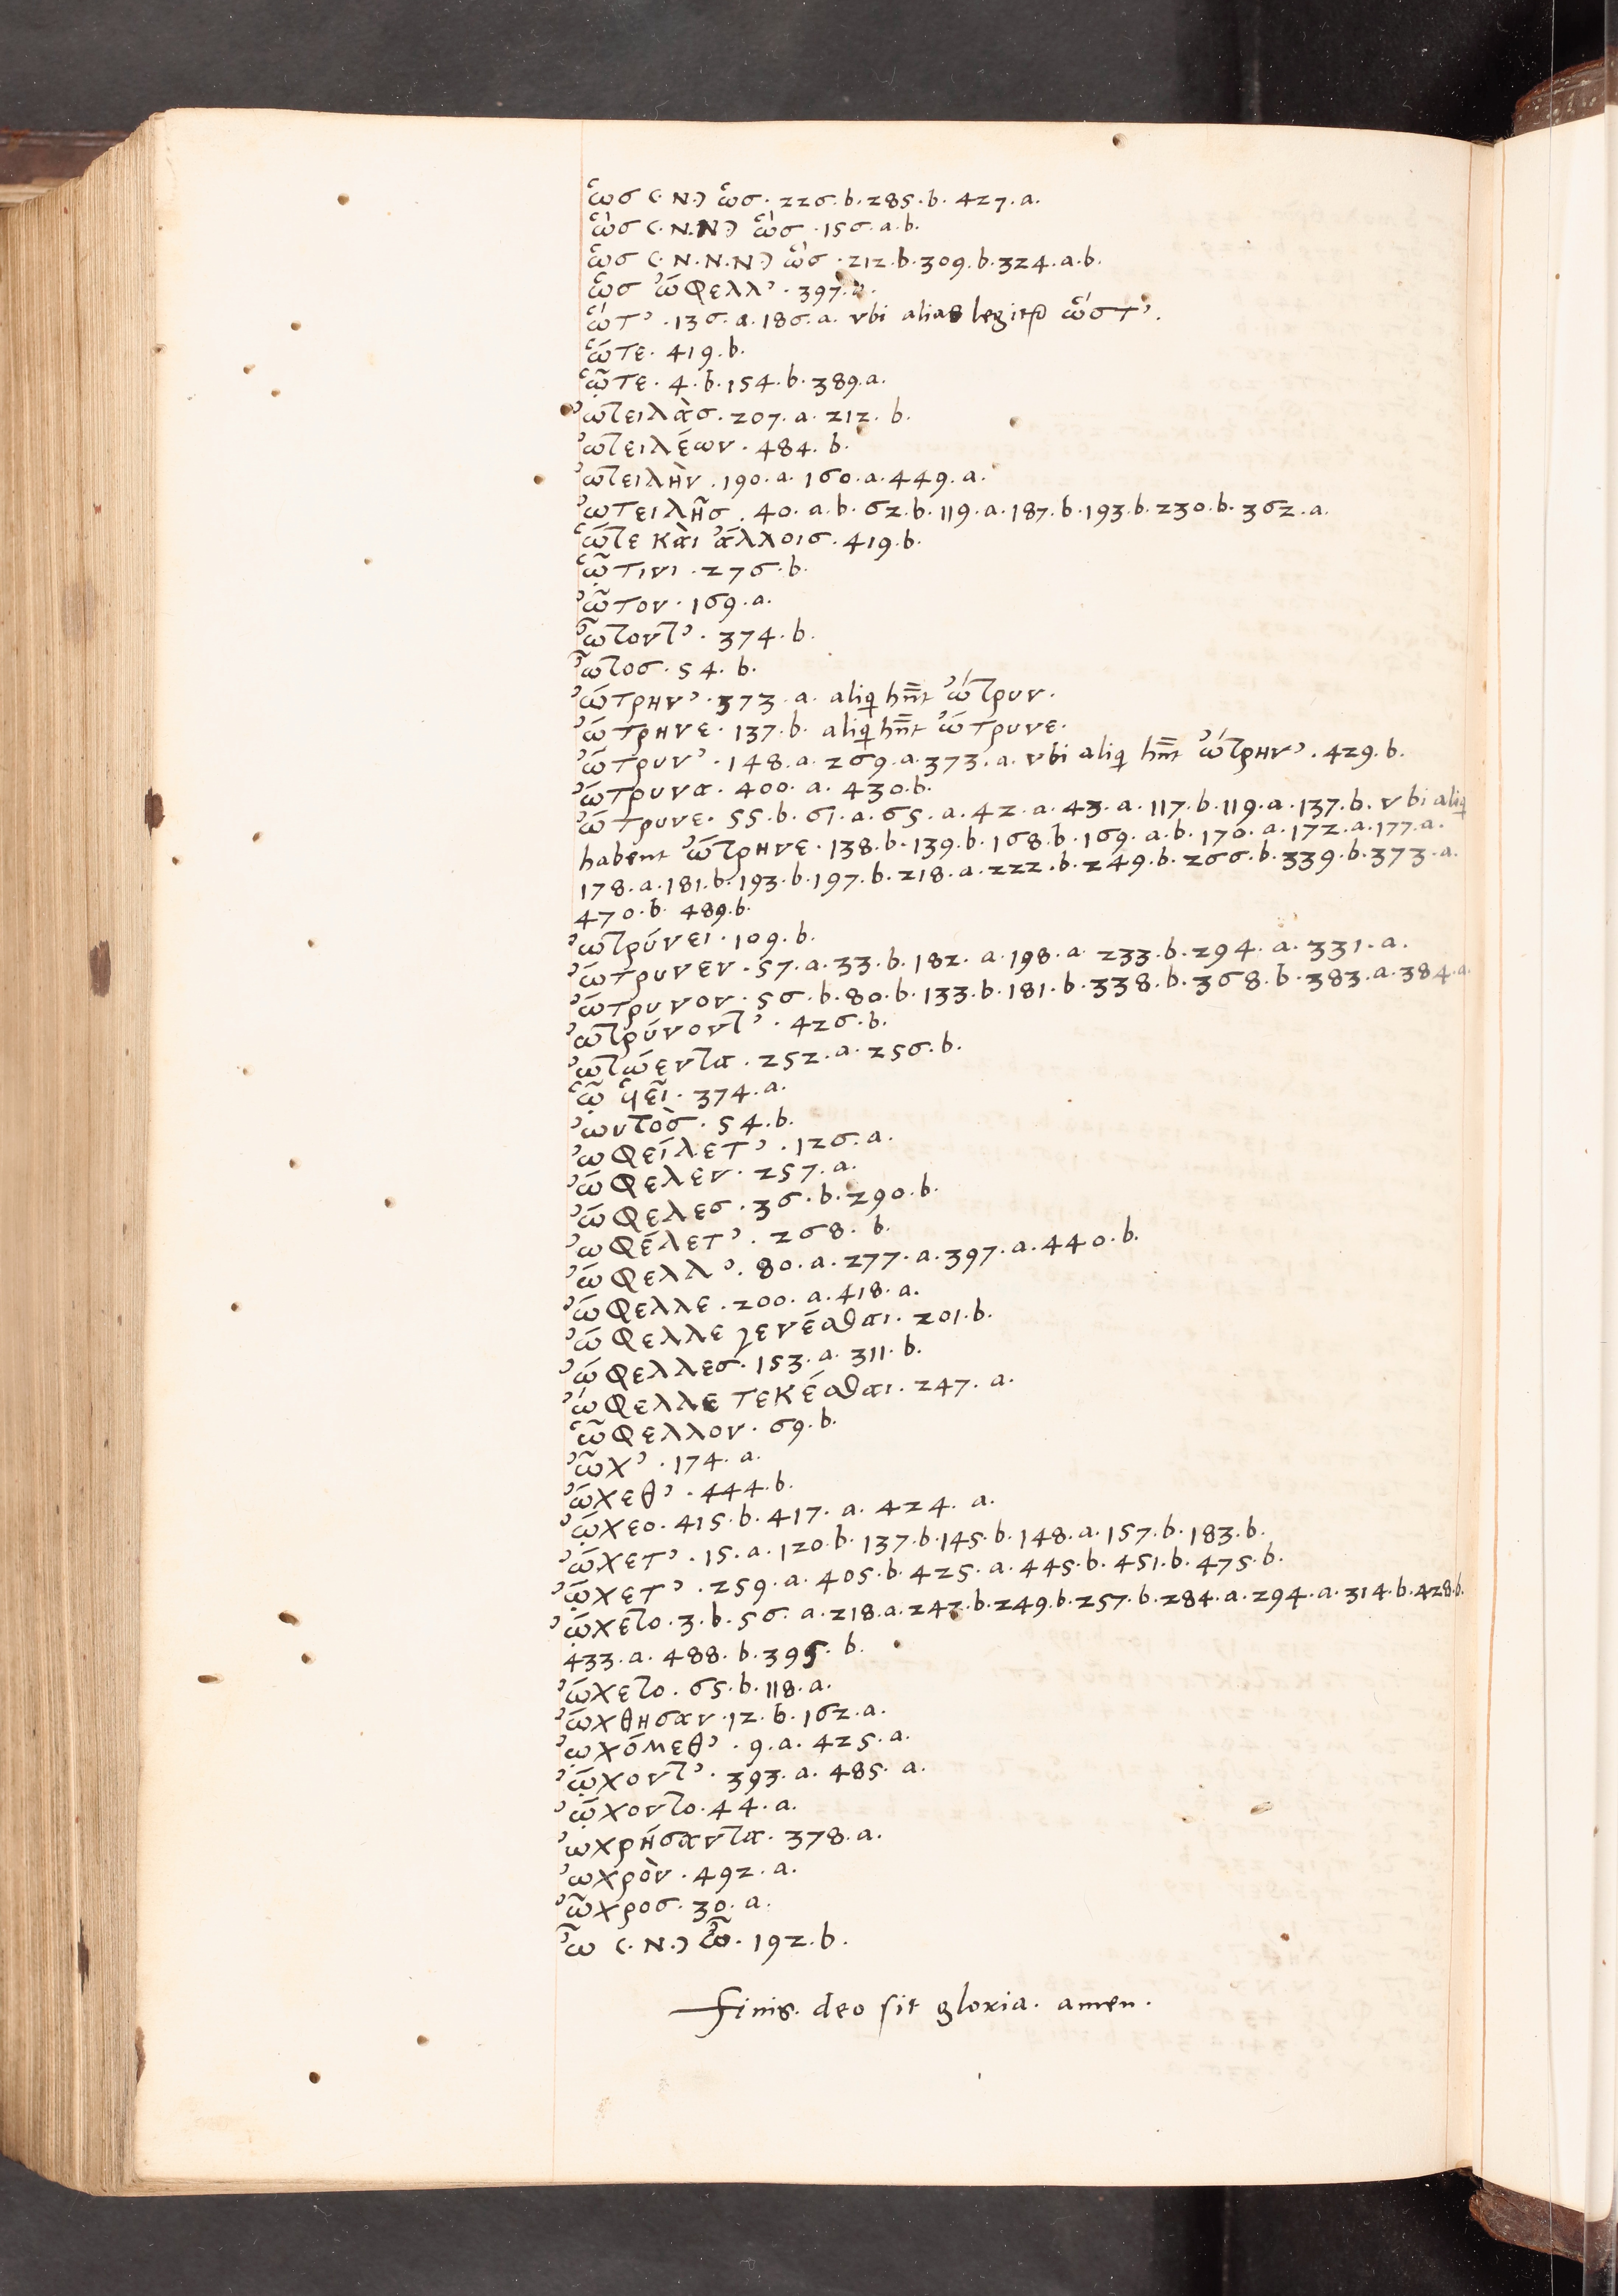 ὡσ (·N·) ὡσ· 226·b·285·b· 427·a·
ὥσ (·N·N·) ὥσ ·156·a·b·
ὡσ (·N·N·N·) ὥσ ·212·b·309·b·324·a·b·
ὡσ ὤφελλ᾽· 397·
ὥτ᾽ ·136·a·186·a· vbi alias legitur ὥστ᾽.
ὥτε· 419·b·
ᾧτε· 4·b·154·b·389·a·
ὠτειλὰσ· 207·a· 212· b·
ὠτειλέων· 484· b·
ὠτειλὴν ·190·a· 160·a·449·a·
ὠτειλῆσ· 40·a·b·62·b·119·a·187·b·193·b·230·b·362·a·
ὥτε καὶ ἄλλοισ·419·b·
ᾧτινι ·276·b·
ὦτον· 169·a·
ὦτοντ᾽· 374·b·
ὦτοσ·54·b·
ὤτρην᾽·373·a· aliqi hn̄t ὤτρυν·
ὤτρηνε· 137·b· aliqi hn̄t ὤτρυνε·
ὤτρυν᾽·148·a·269·a·373·a· vbi aliqi hn̄t ὤτρην᾽·429·b·
ὤτρυνα· 400·a· 430·b·
ὤτρυνε· 55·b·61·a·65·a·42·a·43·a·117·b·119·a·137·b· vbi aliqi
habent ὤτρηνε·138·b·139·b·168·b·169·a·b·170·a·172·a·177·a·
178·a·181·b·193·b·197·b·218·a·222·b·249·b·266·b·339·b·373·a·
470·b· 489·b·
ὠτρύνει·109·b·
ὤτρυνεν·57·a·33·b·182·a·198·a·233·b·294·a·331·a·
ὤτρυνον·56·b·80·b·133·b·181·b·338·b·368·b·383·a·384·a·
ὠτρύνοντ᾽·426·b·
ὠτώεντα·252·a·256·b·
ᾧ υἱεῖ·374·a·
ὠυτὸσ·54·b·
ὠφείλετ᾽·126·a·
ὤφελεν·257·a·
ὤφελεσ·36·b·290·b·
ὠφέλετ᾽·268·b·
ὤφελλ᾽·80·a·277·a·397·a·440·b·
ὤφελλε·200·a·418·a·
ὤφελλε γενέσθαι·201·b·
ὤφελλεσ·153·a·311·b·
ὤφελλε τεκέσθαι·247·a·
ὧφελλον·69·b·
ὦχ᾽·174·a·
ὤχεθ᾽·444·b·
ᾤχεο·415·b·417·a·424·a·
ὤχετ᾽·15·a·120·b·137·b·145·b·148·a·157·b·183·b·
ᾤχετ᾽·259·a·405·b·425·a·445·b·451·b·475·b·
ᾤχετο·3·b·56·a·218·a·242·b·249·b·257·b·284·a·294·a·314·b·428·b·
433·a·488·b·395·b·
ὤχετο·65·b·118·a·
ὤχθησαν·12·b·162·a·
ᾠχόμεθ᾽·9·a·425·a·
ᾤχοντ᾽·393·a·485·a·
ᾤχοντο·44·a·
ὠχρήσαντα·378·a·
ὠχρὸν·492·a·
ὦχροσ·30·a·
ὦ (·N·) ὦ·192·b·
Finis· deo sit gloria· amen·